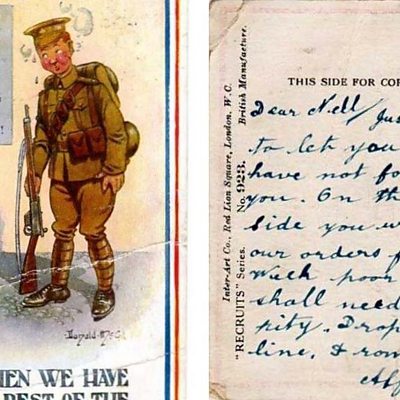 !
Donald McG
HEN WE HAVE
REST OF THE
British Manufacture.
Inter-Art Co., Red Lion Square, London, W.C.
"RECRUITS" Series. No. 923.
THIS SIDE FOR COR
Dear Nell / Jus
to let you
have not fo
you. On th
side you w
our orders f
Week poor
shall need
pity. Drop
line, & ron
Alf